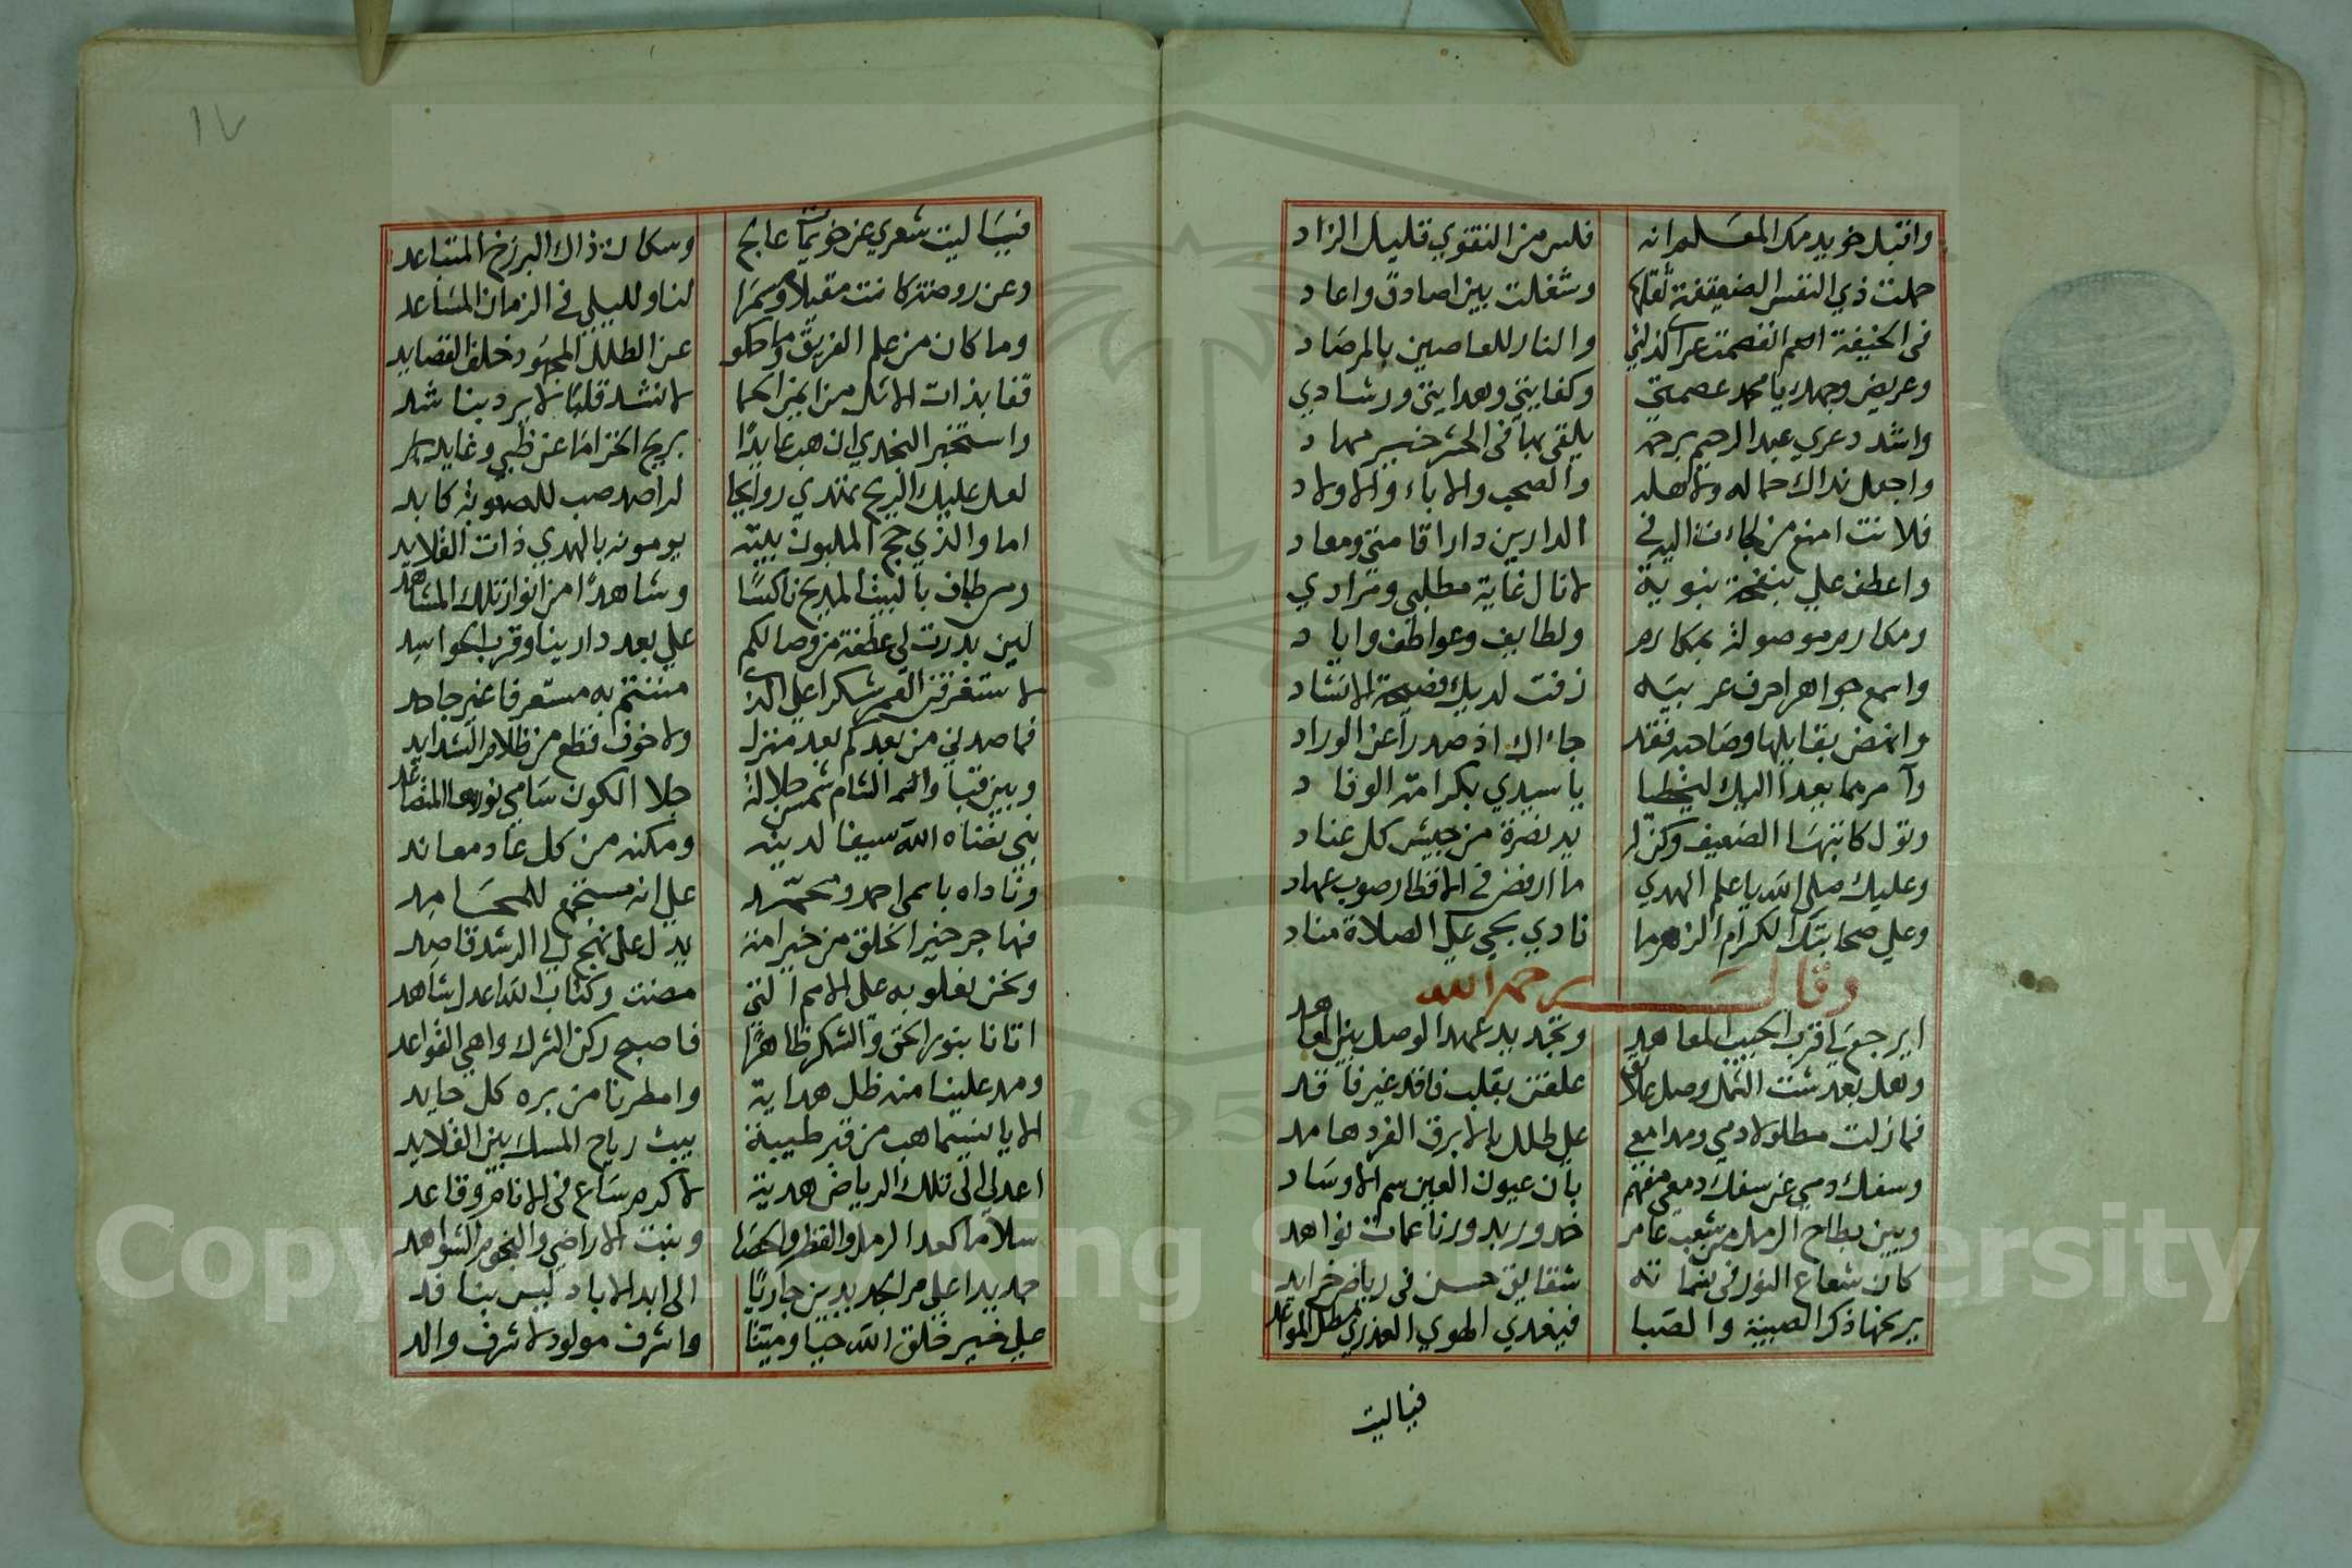 واقبل خويدمك المقسلم انه فليس من التقوي قليل الزاد
حملت ذي النفس الضعيفة ثقلها وشغلت بين اصادق واعاد
والنار للعاصين بالمرصاد
وعريض وجهك يا محمد عصمتي وكفايتي وهدايتي ورشادي
عبد الرحيم يلقي بها في الحشر خير مهاد
واجعل نداك حماله ولاهله والصحب والاباء والاولاد
فلانت امنع من لجات اليه في الدارين دار اقامتي ومعاد
واعطف علي بنفحة نبوية لانال غاية مطلبي ومرادي
ومكارم موصولة بمكارم ولطايف وعواطف واياد
واسمع جواهر احرف عربيه زفت لديك فصيحة الانشاد
وانهض بقايلها وصاحبه فقد جاءاك اذ صدرا عن الوراد
يا سيدي بكرامة الوفاد
الضعيف وكن له يد نصرة من جيش كل عناد
وعليك صلي الله يا علم الهدي ما ارفض في الاقطار صوب عهاد
وعلي صحابتك الكرام الزهر ما نادي بحي علي الصلاة مناد
وقال يرحمه الله
ايرجع لي قرب الحبيب المعاهد وتجديد عهد الوصل بين المعاهد
وهل بعد شت الشمل وصل علايق علقن بقلب فاقد غير فاقد
فما زلت مطلولا دمي ومدامعي علي طلل بالابرق الفرد هامد
وسفك دمي عن سفك دمعي مفهم بان عيون العين سم الاوساد
وبين بطاح الرمل من شعب عامر خدور بدور ناعمات نواهد
كان شعاع النور في نغماته شقايق حسن في رياض خرايد
يرنحها ذكر الصبينة والصبا فيغدي الهوي العذري بمطل المواعد
فياليت
فيا ليت شعري عن خويمات عالج وسكان ذاك البرزخ المتباعد
وعن روضة كانت مقيلا وسمرا لنا ولليلي في الزمان المساعد
وما كان من علم الفريق وما حكو عن الطلل المهجور خلف القصايد
قفا بذات الاثل من ايمن الحما لانشد قلبا لا يرد بناشد
واستخبر النجدي ان هب عايدا بريح الخزاما عن ظبي وغايد
لعل عليل الريح تهدي روايحا
اما والذي حج الملبون بيته يومونه بالهدي ذات القلايد
ومن طاف بالبيت المديح ناكسا وشاهدا من انوار تلك المشاهد
لين بدرت لي عطفة من وصالكم علي بعد دارينا وقرب الحواسد
لاستغرقن العمر شكرا علي الذي مننتم به مستعرفا غير جاحد
فما صدني من بعدكم بعد منزل ولا خوف قطع من ظلام الشدايد
وبين قبا والشام شمس جلالة جلا الكون سامي نورها المتصاعد
نبي نضاه الله سيفا لدينه ومكنه من كل عاد معاند
وناداه باسمي احمد ومحمد علي انه مستجمع للمحامد
فهاجر خير الخلق من خير امة يدل علي نهج الي الرشد قاصد
ونحن نعلو به علي الامم التي مضت وكتاب الله اعدل شاهد
اتانا بنور الحق والشك ظاهرا فاصبح ركن الشرك واهي القواعد
ومد علينا منه ظل هداية وامطرنا من بره كل حايد
الا يا نسيما هب من قبر طيبة يبث رياح المسك بين القلايد
اعد لي الي تلك الرياض هدية لاكرم ساع في الانام وقاعد
سلاما كعد الرمل والقطر والحصا ونبت الاراضي والنجوم الشواهد
جديدا علي مر الجديدين جاريا الي ابد الاباد ليس بنافد
علي خير خلق الله حيا وميتا واشرف مولود لاشرف والد